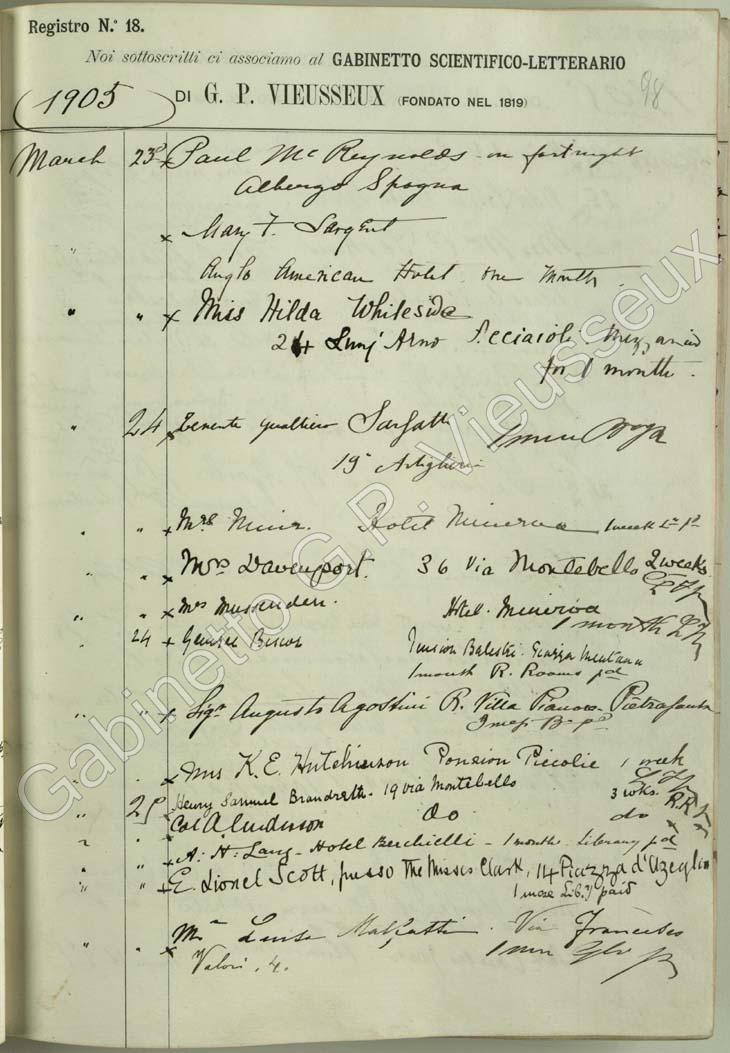 Registro N.° 18.
Noi sottoscritti ci associamo al GABINETTO SCIENTIFICO-LETTERARIO
1905 DI G. P. VIEUSSEUX (FONDATO NEL 1819) 98
March 23 x Paul McReynolds - on fortnight
Albergo Spagna
" x Mary F. Sargent
Anglo American Hotel one month.
" " x Miss Hilda Whiteside
24 Lung' Arno Acciaioli Mezzanino
for 1 month.
" 24 x Tenente Gualtiero Sarfatti
19° Artiglieria
" " x Mrs Hotel Minerva 1 week
" " x Mrs Davenport. 36 Via Montebello 2 weeks
" " x Mrs Mussenden. Hotel Minerva
1 month
" 24 x General Pension Balestri Piazza Mentana
1 month R. Rooms pd
" " x Sigr Augusto Agostini R. Villa Pietrasanta
" x Mrs K. E. Hutchinson Pension Piccolie 1 week
" 25 x Henry Samuel Brandreth - 19 via Montebello 3 wks.
Col A Anderson do do
" " x A: H: Lang - Hotel Berchielli - 1 month. Library pd
" " x E. Lionel Scott, presso The Misses Clark, 14 Piazza d'Azeglio
1 mese Lib.y paid
" " x Luisa Malfatti. Via Francesco
Valori. 4.
Gabinetto G.P. Vieusseux